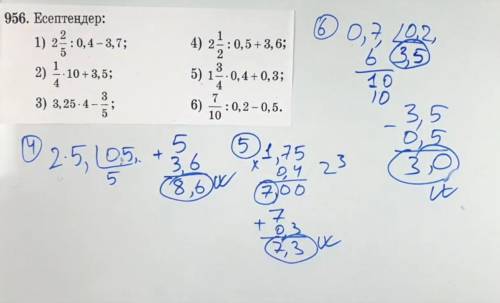 956. Есептеңдер:
1) 2 2/5 : 0,4 – 3,7;
2) 1/4 · 10 + 3,5;
3) 3,25 · 4 – 3/5;
4) 2 1/2 : 0,5 + 3,6;
5) 1 3/4 · 0,4 + 0,3;
6) 7/10 : 0,2 – 0,5.
6 0,7, 0,2,
6 3,5
10
10
- 3,5
0,5
3,0
4 2.5, 0,5,
5
+ 5
3,6
8,6
5 × 1,75
0,4
7,00
2 3
+ 7
0,3
7,3